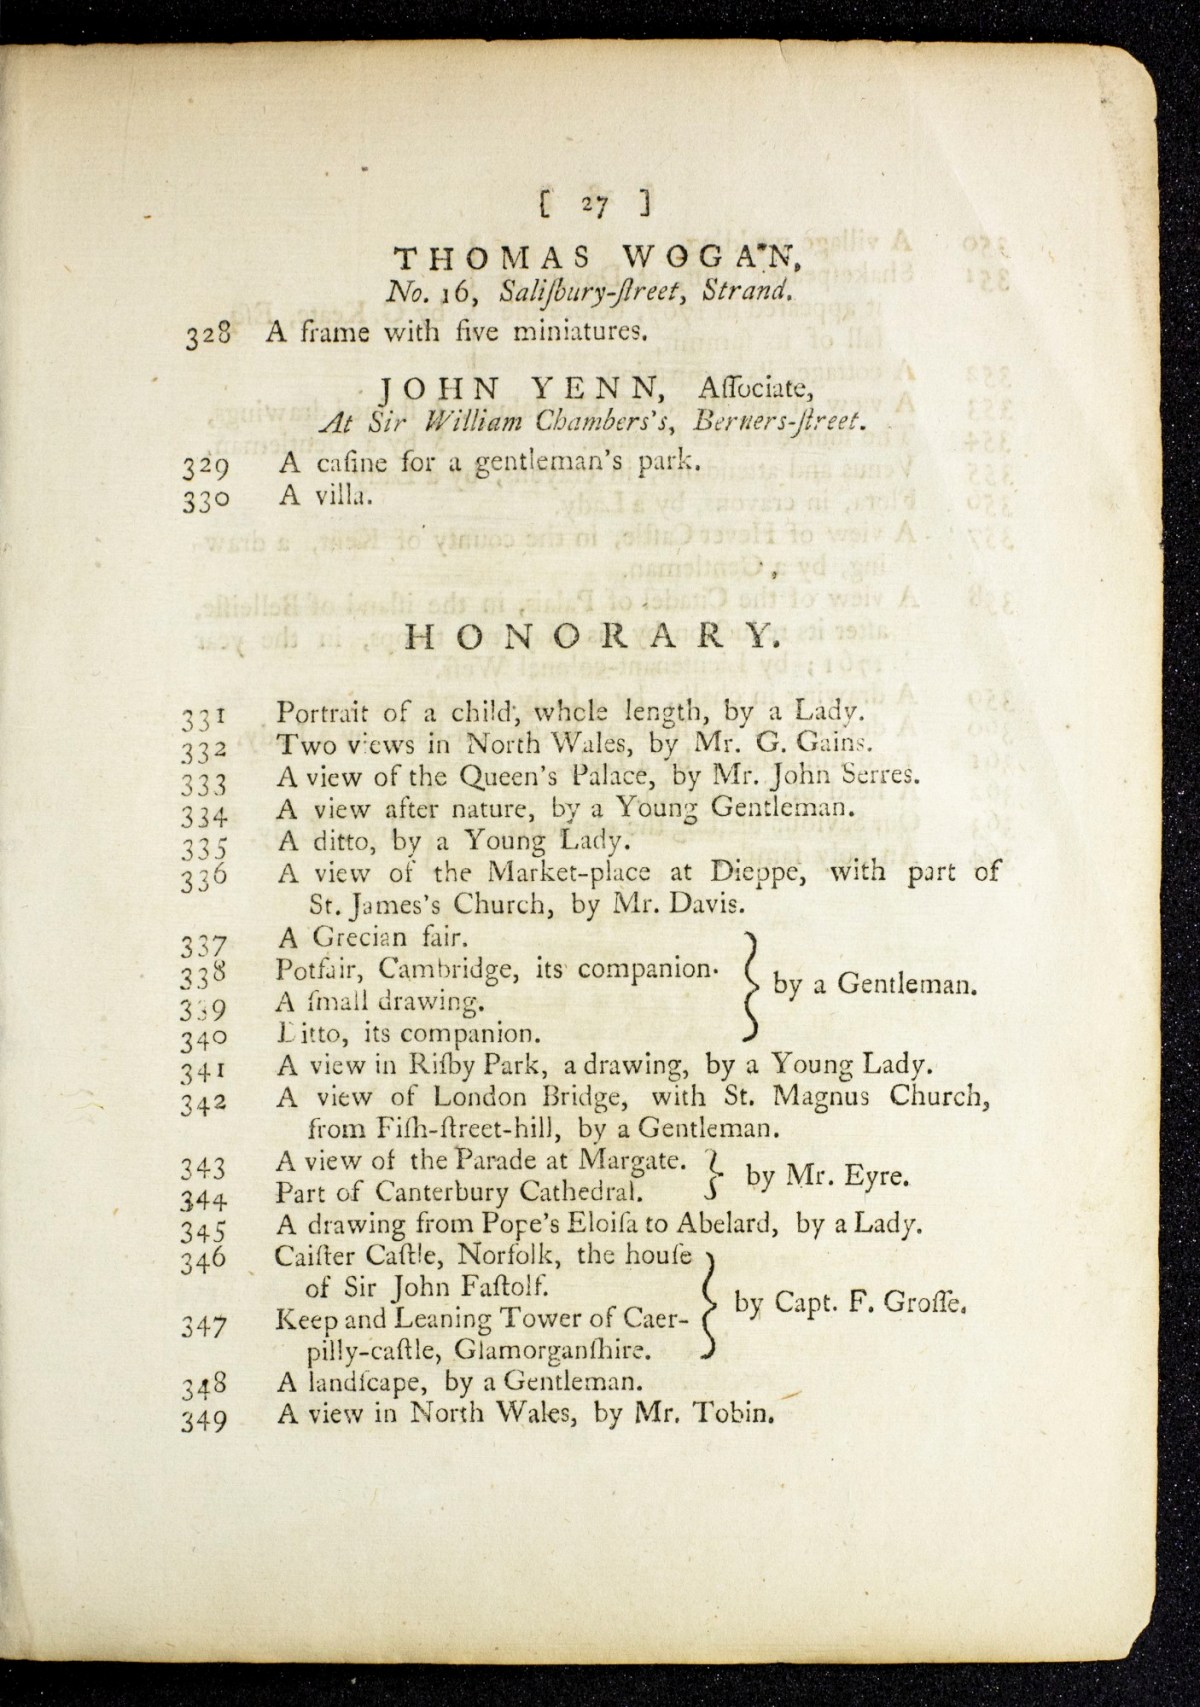 [ 27 ]
THOMAS WOGAN,
No. 16, Saliſbury-ſtreet, Strand.
328 A frame with five miniatures.
JOHN YENN, Aſſociate,
At Sir William Chambers's, Berners-ſtreet.
329 A caſine for a gentleman's park.
330 A villa.
HONORARY.
331 Portrait of a child, whole length, by a Lady.
332 Two views in North Wales, by Mr. G. Gains.
333 A view of the Queen's Palace, by Mr. John Serres.
334 A view after nature, by a Young Gentleman.
335 A ditto, by a Young Lady.
336 A view of the Market-place at Dieppe, with part of
St. James's Church, by Mr. Davis.
337 A Grecian fair.
338 Potfair, Cambridge, its companion.
by a Gentleman.
339 A ſmall drawing.
340 Ditto, its companion.
341 A view in Riſby Park, a drawing, by a Young Lady.
342 A view of London Bridge, with St. Magnus Church,
from Fiſh-ſtreet-hill, by a Gentleman.
343 A view of the Parade at Margate.
by Mr. Eyre.
344 Part of Canterbury Cathedral.
345 A drawing from Pope's Eloiſa to Abelard, by a Lady.
346 Caiſter Caſtle, Norfolk, the houſe
of Sir John Faſtolf.
by Capt. F. Groſſe.
347 Keep and Leaning Tower of Caer-
pilly-caſtle, Glamorganſhire.
348 A landſcape, by a Gentleman.
349 A view in North Wales, by Mr. Tobin.